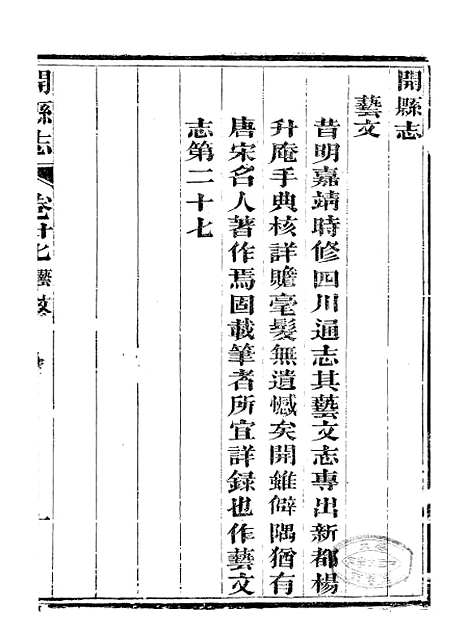 開縣志
藝文
昔明嘉靖時修四川通志其藝文志專出新都楊
升庵手典核詳贍毫髮無遺憾矣開雖僻隅猶有
唐宋名人著作焉固載筆者所宜詳録也作藝文
志第二十七
開縣志
卷二十七 藝文
一